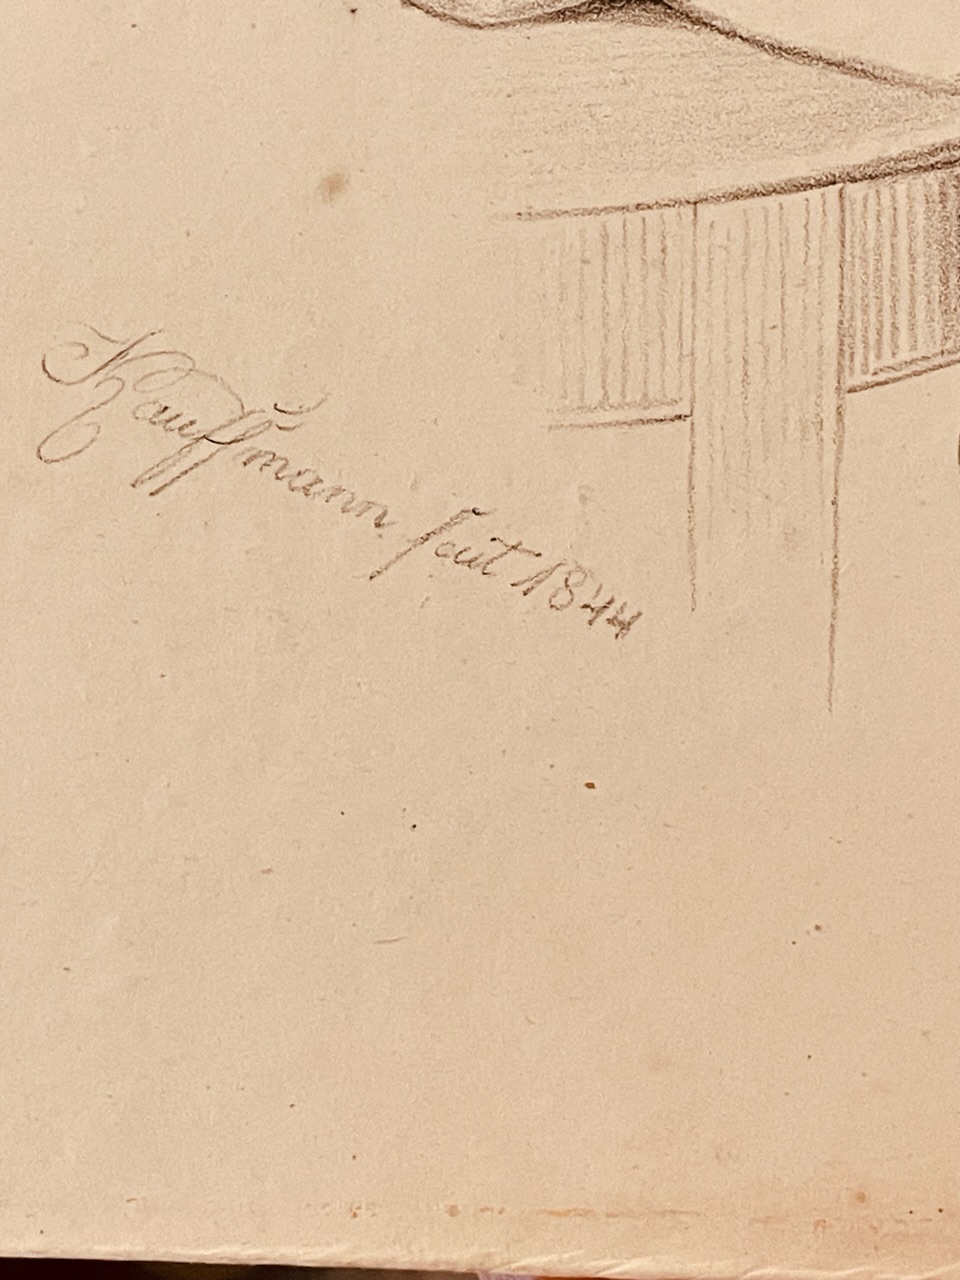 Kauffmann fait 1844